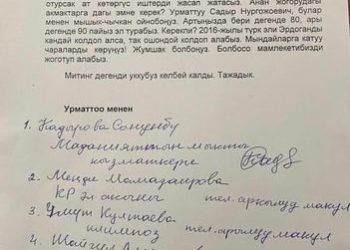 отурсак ат көтөргүс иштерди жасап жатасыз. Анан жогорудагы
акмактарга дагы эмне керек? Урматтуу Садыр Нургожоевич, булар
менен мышык-чычкан ойнобоңуз. Артыңызда бери дегенде 80, ары
дегенде 90 пайыз эл турабыз. Керекпи? 2016-жылы түрк эли Эрдоганды
кандай колдоп алса, так ошондой колдоп алабыз. Мындайларга катуу
чараларды көрүңүз! Жумшак болбоңуз. Болбосо мамлекетибизди
жоготуп алабыз.
Митинг дегенди уккубуз келбей калды. Тажадык.
Урматтоо менен
1. Кадырова Сонунбу
Маданияттын мыкты
кызматкери
2. Менди Мамазаирова
КР эл акыны тел. аркылуу макул
3. Умут Култаева
тел. аркылуу макул
4. Шайгул